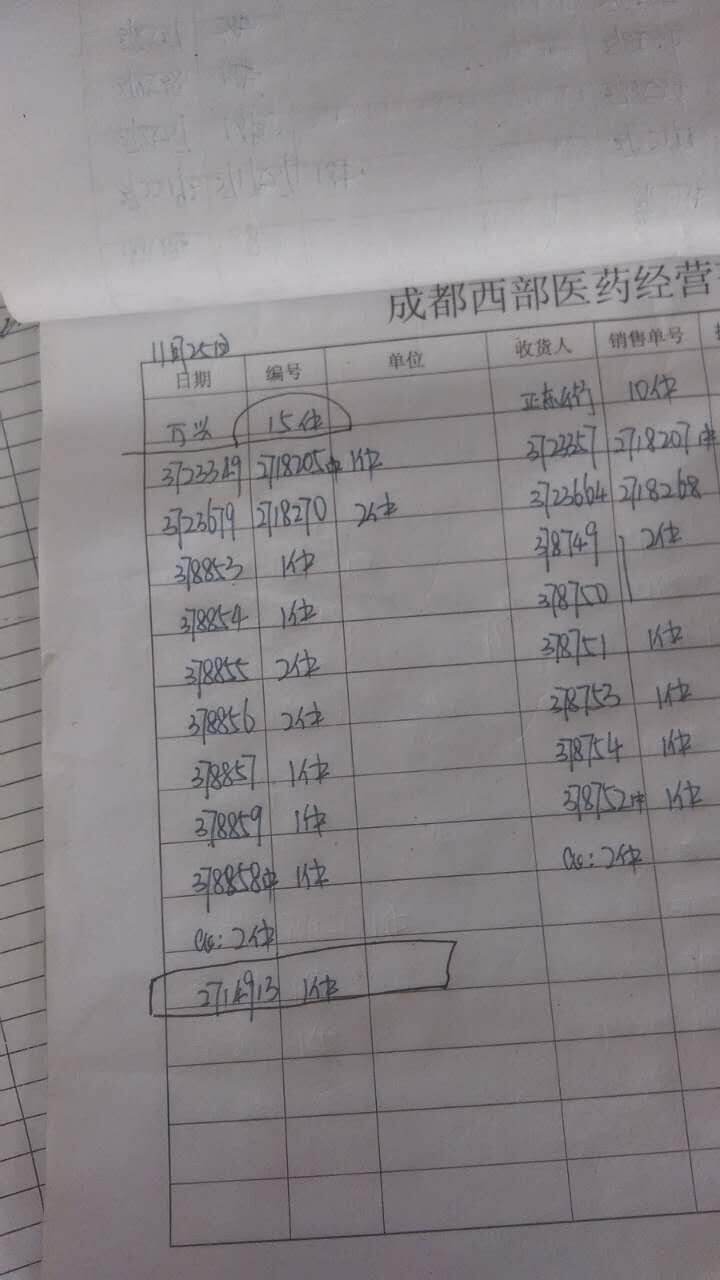 成都西部医药经营
11月25日
日期 编号 单位 收货人 销售单号
万兴 15件 10件
3723349 2718205中 1件 3723357 2718207中
3723679 2718270 2件 3723664 2718268
378853 1件 378749 2件
378854 1件 378750
378855 2件 378751 1件
378856 2件 378753 1件
378857 1件 378754 1件
378859 1件 378752中 1件
378858中 1件 2件
2件
2714913 1件